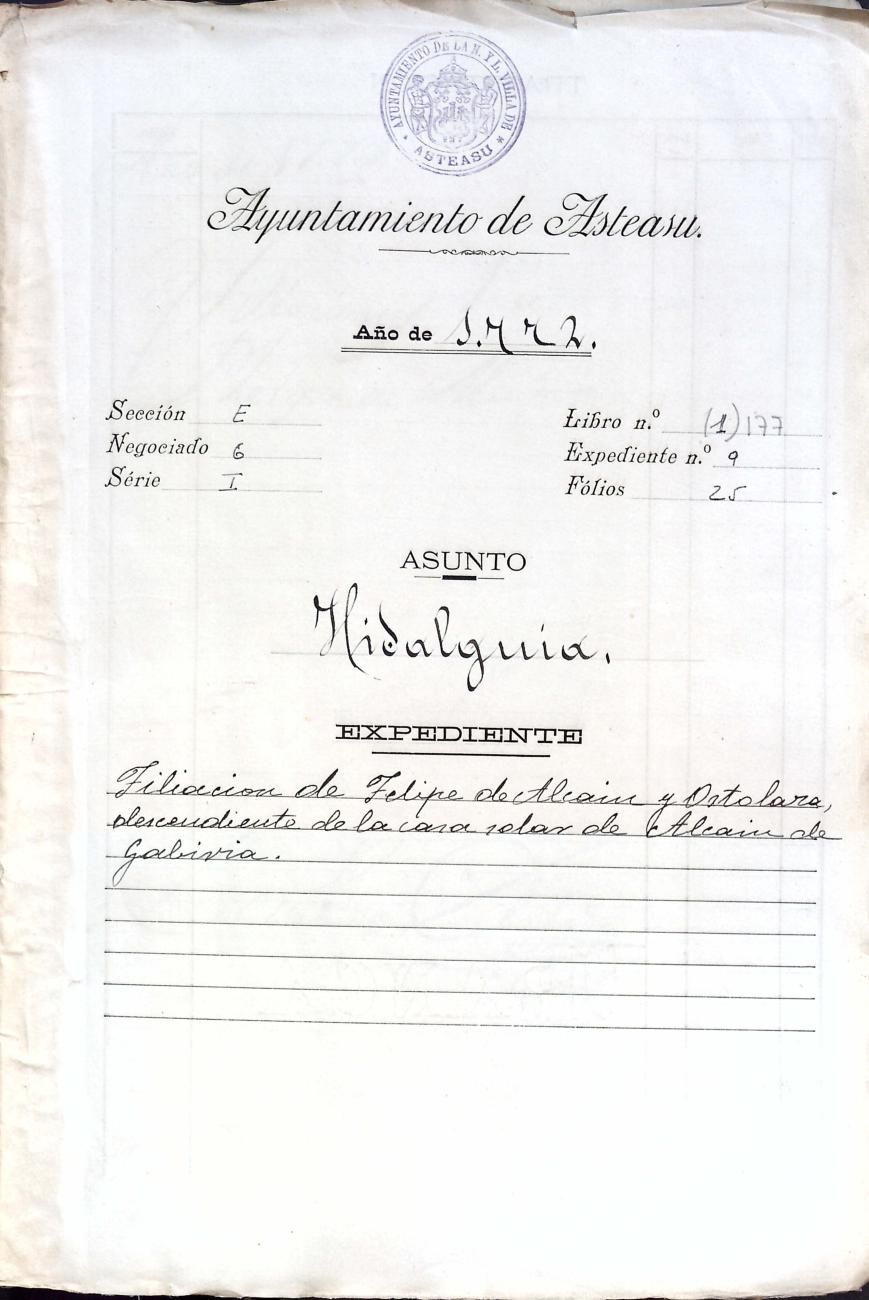 AYUNTAMIENTO DE LA N. Y L. VILLA DE
* ASTEASU *
Ayuntamiento de Asteasu.
Año de 1.772.
Sección E
Negociado 6
Série I
Libro n.º (1) 177
Expediente n.º 9
Fólios 25
ASUNTO
Hidalguia.
EXPEDIENTE
Filiacion de Felipe de Alcain y Ostolaza,
descendiente de la casa solar de Alcain de
Gabiria.